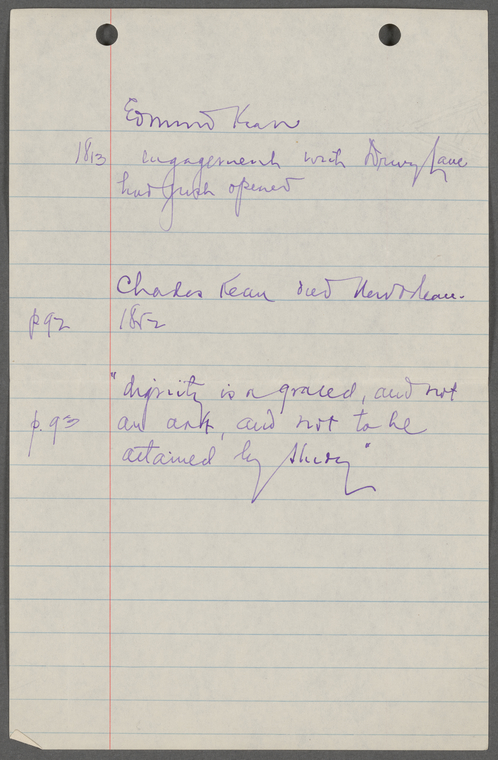 Edmund Kean
1813 engagement with Drury Lane
had just opened
Charles Kean died
p 92 1852
"dignity is a graced, and not
p. 93 an art, and not to be
attained by study"